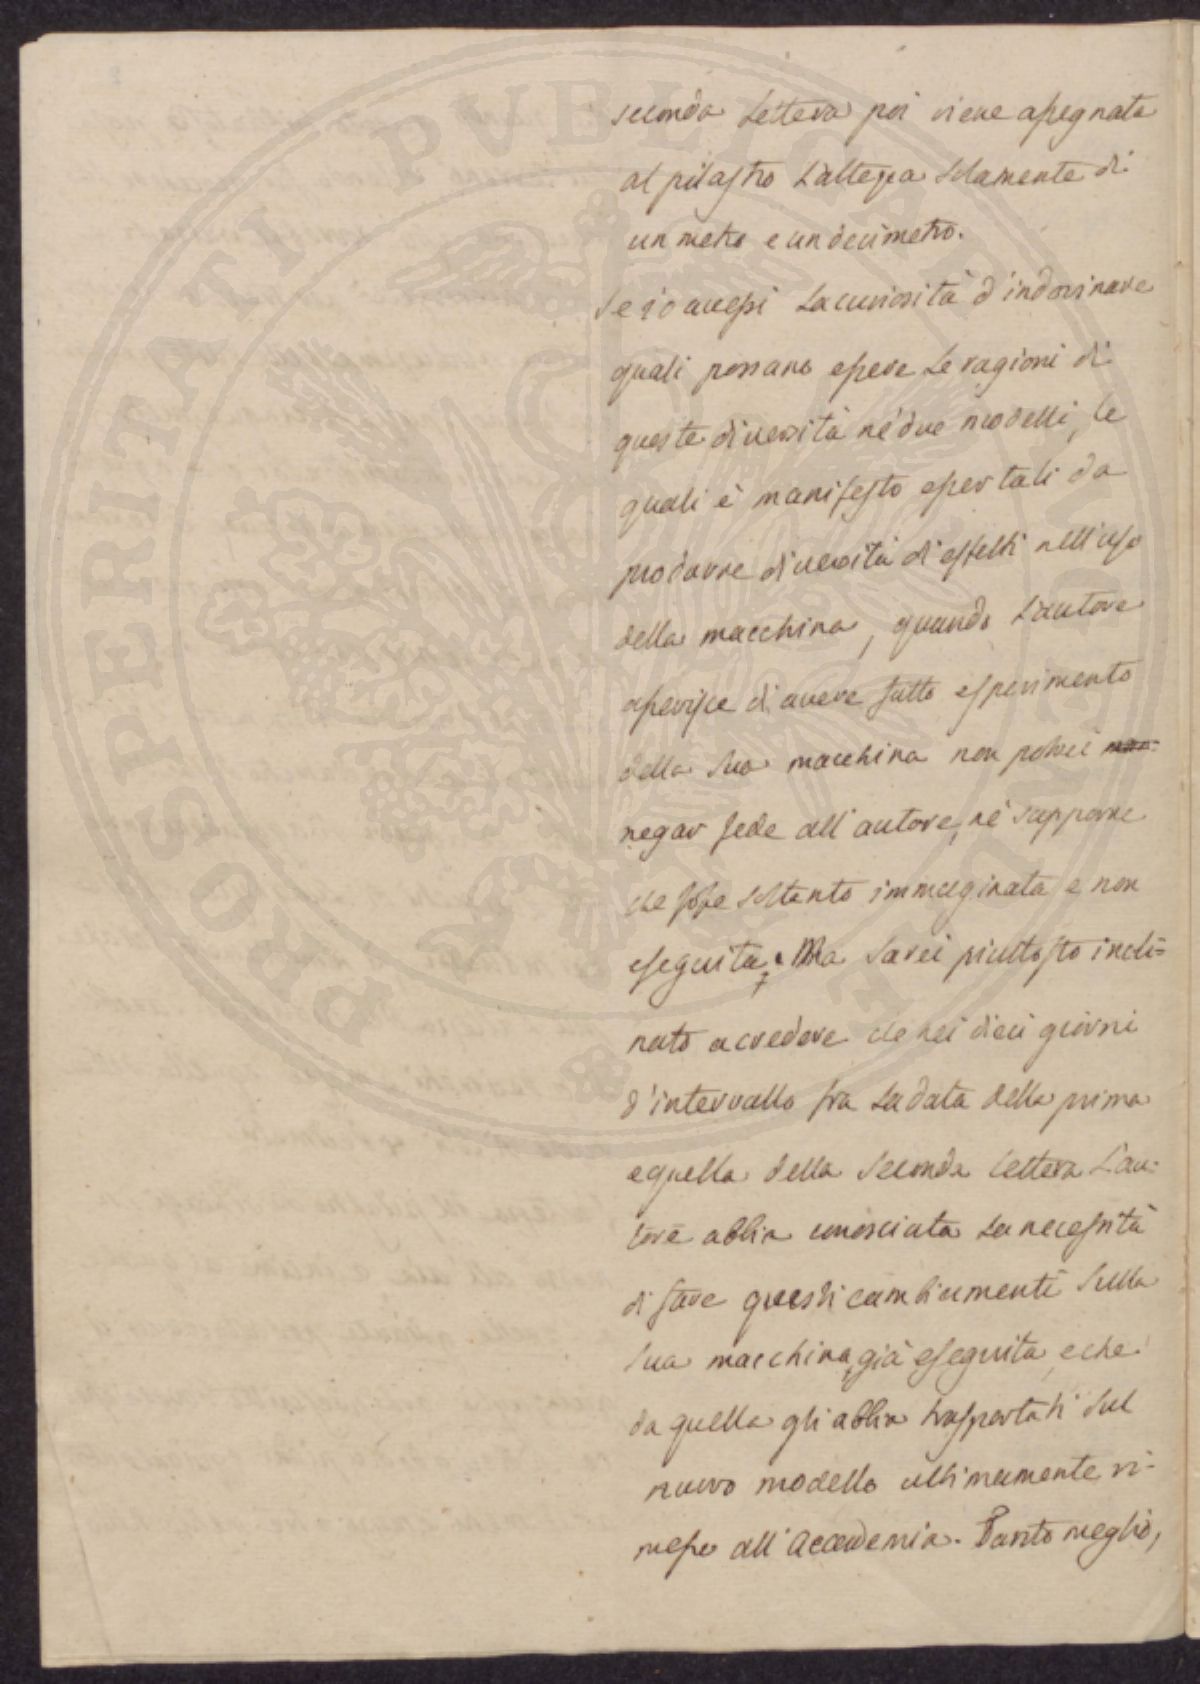 seconda Lettera poi viene assegnata
al pilastro L'altezza solamente di
un metro e un decimetro.
Se io avessi La curiosità d'indovinare
quali possano essere Le ragioni di
queste diversità ne' due modelli, le
quali è manifesto esser tali da
produrre diversità di effetti nell'uso
della macchina, quando L'autore
asserisce di avere fatto esperimento
della sua macchina non potrei non
negar fede all'autore, nè supporre
che fosse soltanto immaginata e non
eseguita; Ma sarei piuttosto incli=
nato a credere che nei dieci giorni
d'intervallo fra La data della prima
e quella della seconda Lettera L'au-
tore abbia conosciuta La necessità
di fare questi cambiamenti sulla
sua macchina già eseguita, e che
da quella gli abbia trasportati sul
nuovo modello ultimamente ri-
messo all'Accademia. Tanto meglio,
PROSPERITATI PUBLICAE AUGENDAE